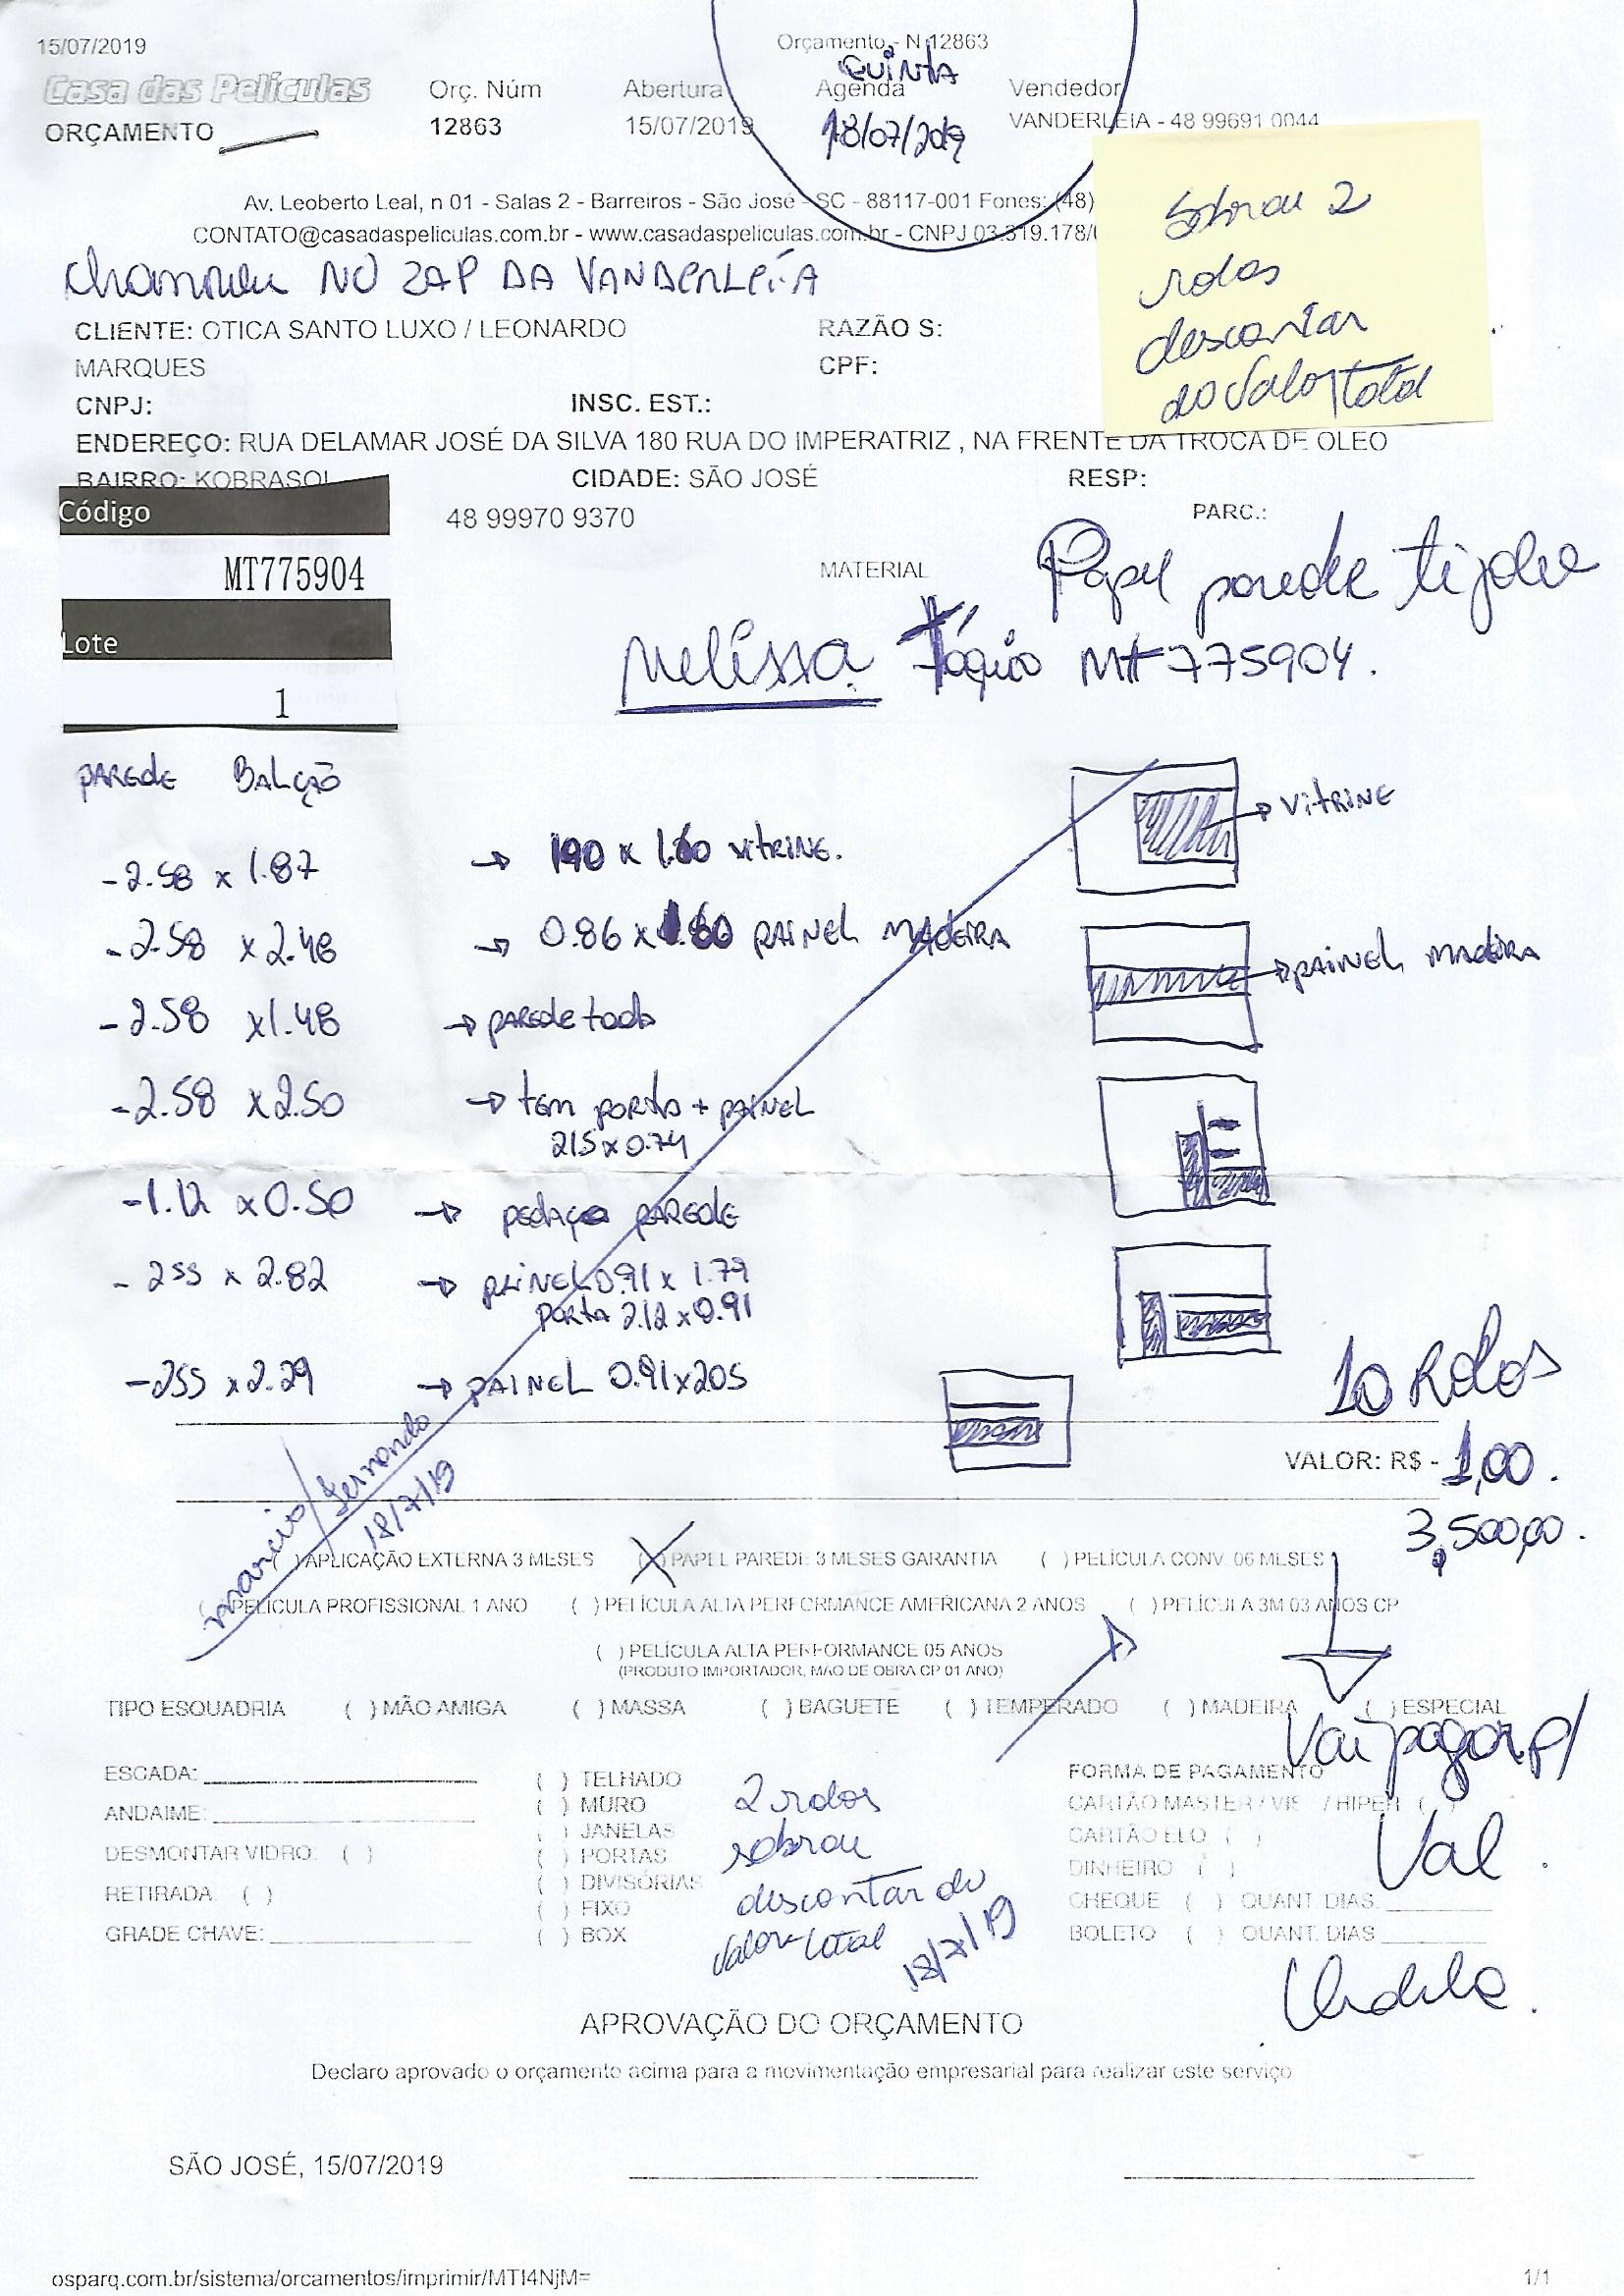 15/07/2019
Orçamento - N 12863
Casa das Películas
Orç. Núm
Abertura
QUINTA
Agenda
Vendedor
ORÇAMENTO
12863
15/07/2019
18/07/2019
VANDERLEIA - 48 99691 0044
Av. Leoberto Leal, n 01 - Salas 2 - Barreiros - São José - SC - 88117-001 Fones: (48)
CONTATO@casadaspeliculas.com.br - www.casadaspeliculas.com.br - CNPJ 03.319.178/
Sobrou 2
rolos
descontar
do valor total
NO ZAP DA VANDERLEIA
CLIENTE: OTICA SANTO LUXO / LEONARDO
MARQUES
RAZÃO S:
CPF:
CNPJ:
INSC. EST.:
ENDEREÇO: RUA DELAMAR JOSÉ DA SILVA 180 RUA DO IMPERATRIZ , NA FRENTE DA TROCA DE OLEO
BAIRRO: KOBRASOL
CIDADE: SÃO JOSÉ
RESP:
Código
48 99970 9370
PARC.:
MT775904
MATERIAL
Papel parede tijolo
Lote
Melissa
Tóquio MT 775904.
1
PAREDE BALCÃO
→ VITRINE
-2.58 x 1.87 → 190 x 1.60 VITRINE.
-2.58 x 2.48 → 0.86 x 1.80 PAINEL MADEIRA
→ PAINEL MADEIRA
-2.58 x 1.48 → PAREDE toda
-2.58 x 2.50 → tem PORTA + PAINEL
215 x 0.74
-1.12 x 0.50 → PEDAÇO PAREDE
- 255 x 2.82 → PAINEL 0.91 x 1.79
PORTA 2.12 x 0.91
-255 x 2.29 → PAINEL 0.91 x 205
10 Rolos
VALOR: R$ - 1,00.
3,500,00.
marcio/Fernando
18/7/19
( ) APLICAÇÃO EXTERNA 3 MESES (X) PAPEL PAREDE 3 MESES GARANTIA ( ) PELÍCULA CONV. 06 MESES
( ) PELÍCULA PROFISSIONAL 1 ANO ( ) PELÍCULA ALTA PERFORMANCE AMERICANA 2 ANOS ( ) PELÍCULA 3M 03 ANOS CP
( ) PELÍCULA ALTA PERFORMANCE 05 ANOS
(PRODUTO IMPORTADOR, MAO DE OBRA CP 01 ANO)
TIPO ESQUADRIA ( ) MÃO AMIGA ( ) MASSA ( ) BAGUETE ( ) TEMPERADO ( ) MADEIRA ( ) ESPECIAL
Vai pagar p/
Val.
ESCADA:
ANDAIME:
DESMONTAR VIDRO: ( )
RETIRADA: ( )
GRADE CHAVE:
( ) TELHADO
( ) MURO
( ) JANELAS
( ) PORTAS
( ) DIVISÓRIAS
( ) FIXO
( ) BOX
2 rolos
sobrou
descontar do
valor total
18/7/19
FORMA DE PAGAMENTO
CARTÃO MASTER / VIS / HIPER ( )
CARTÃO ELO ( )
DINHEIRO ( )
CHEQUE ( ) QUANT. DIAS:
BOLETO ( ) QUANT. DIAS
APROVAÇÃO DO ORÇAMENTO
Declaro aprovado o orçamento acima para a movimentação empresarial para realizar este serviço
SÃO JOSÉ, 15/07/2019
osparq.com.br/sistema/orcamentos/imprimir/MTI4NjM=
1/1